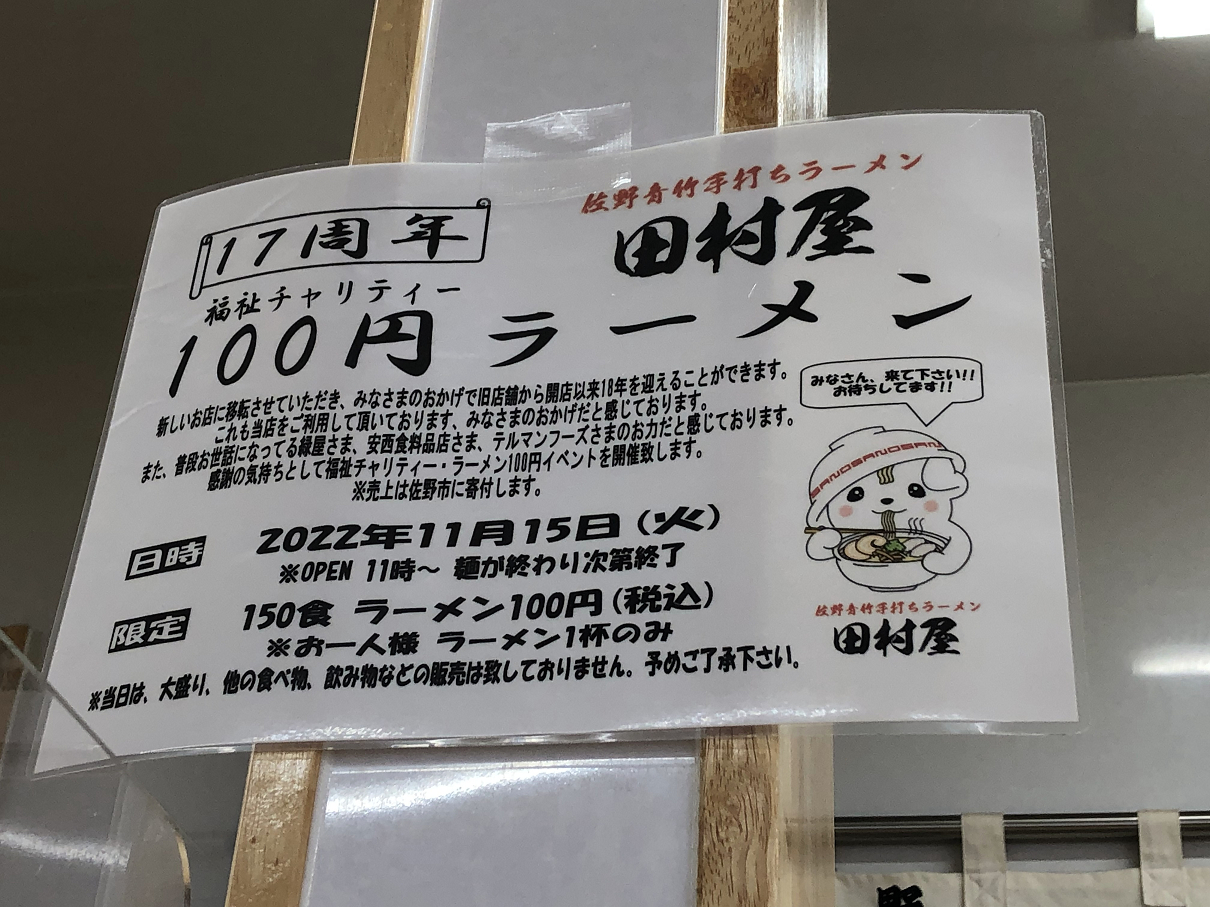 17周年
佐野青竹手打ちラーメン
田村屋
福祉チャリティー
100円ラーメン
新しいお店に移転させていただき、みなさまのおかげで旧店舗から開店以来18年を迎えることができます。
これも当店をご利用して頂いております、みなさまのおかげだと感じております。
また、普段お世話になってる緑屋さま、安西食料品店さま、テルマンフーズさまのお力だと感じております。
感謝の気持ちとして福祉チャリティー・ラーメン100円イベントを開催致します。
※売上は佐野市に寄付します。
みなさん、来て下さい!!
お待ちしてます!!
SANOSANOSANO
日時 2022年11月15日(火)
※OPEN 11時～ 麺が終わり次第終了
限定 150食 ラーメン100円(税込)
※お一人様 ラーメン1杯のみ
※当日は、大盛り、他の食べ物、飲み物などの販売は致しておりません。予めご了承下さい。
佐野青竹手打ちラーメン
田村屋
野